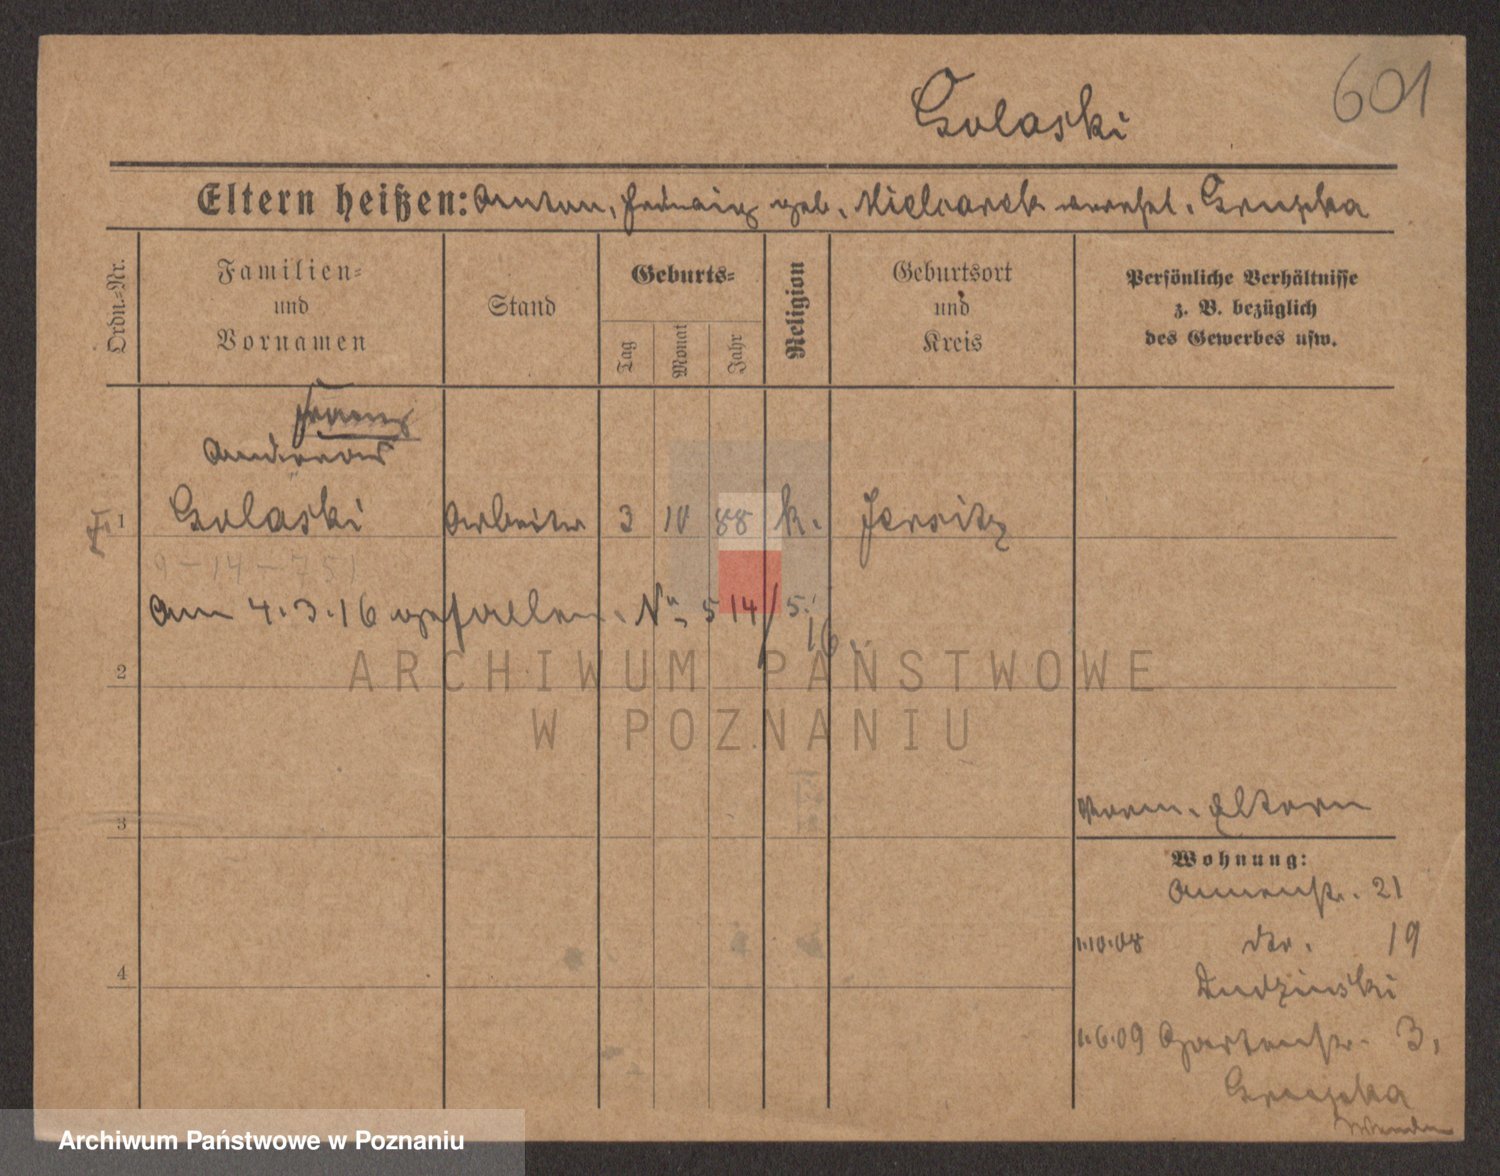 Golaski
601
Eltern heißen: Anton, Hedwig geb. Mielcarek verehel. Gruszka
Ordn.-Nr.
Familien-
und
Vornamen
Stand
Geburts-
Tag
Monat
Jahr
Religion
Geburtsort
und
Kreis
Persönliche Verhältnisse
z. B. bezüglich
des Gewerbes usw.
Franz
Andreas
1 Golaski Arbeiter 3 10 88 k. Jersitz
9-14-751
Am 4.3.16 gefallen. No 514/5.16.
ARCHIWUM PAŃSTWOWE
W POZNANIU
2
3
4
Eltern
Wohnung:
Annenstr. 21
1.10.08 dto. 19
Dudzinski
1.6.09 Gartenstr. 3,
Gruszka
Archiwum Państwowe w Poznaniu